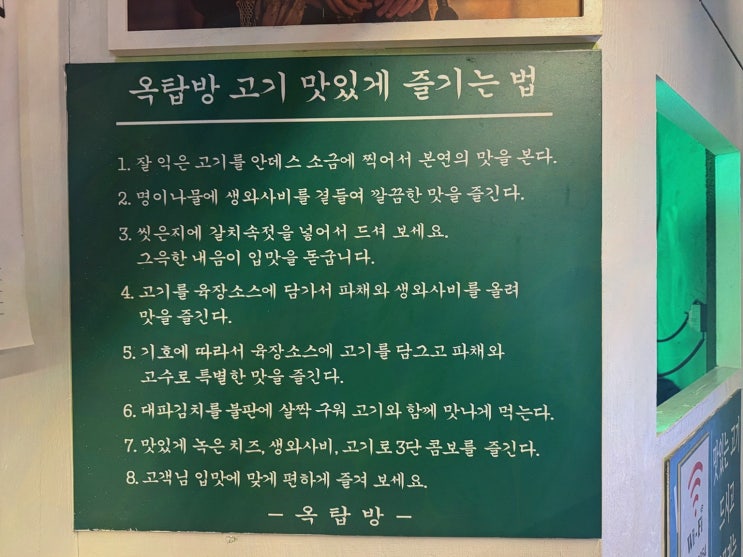 옥탑방 고기 맛있게 즐기는 법
1. 잘 익은 고기를 안데스 소금에 찍어서 본연의 맛을 본다.
2. 명이나물에 생와사비를 곁들여 깔끔한 맛을 즐긴다.
3. 씻은지에 갈치속젓을 넣어서 드셔 보세요.
그윽한 내음이 입맛을 돋굽니다.
4. 고기를 육장소스에 담가서 파채와 생와사비를 올려
맛을 즐긴다.
5. 기호에 따라서 육장소스에 고기를 담그고 파채와
고수로 특별한 맛을 즐긴다.
6. 대파김치를 불판에 살짝 구워 고기와 함께 맛나게 먹는다.
7. 맛있게 녹은 치즈, 생와사비, 고기로 3단 콤보를 즐긴다.
8. 고객님 입맛에 맞게 편하게 즐겨 보세요.
- 옥탑방 -
맛있는 고기
드시고
Wi-Fi